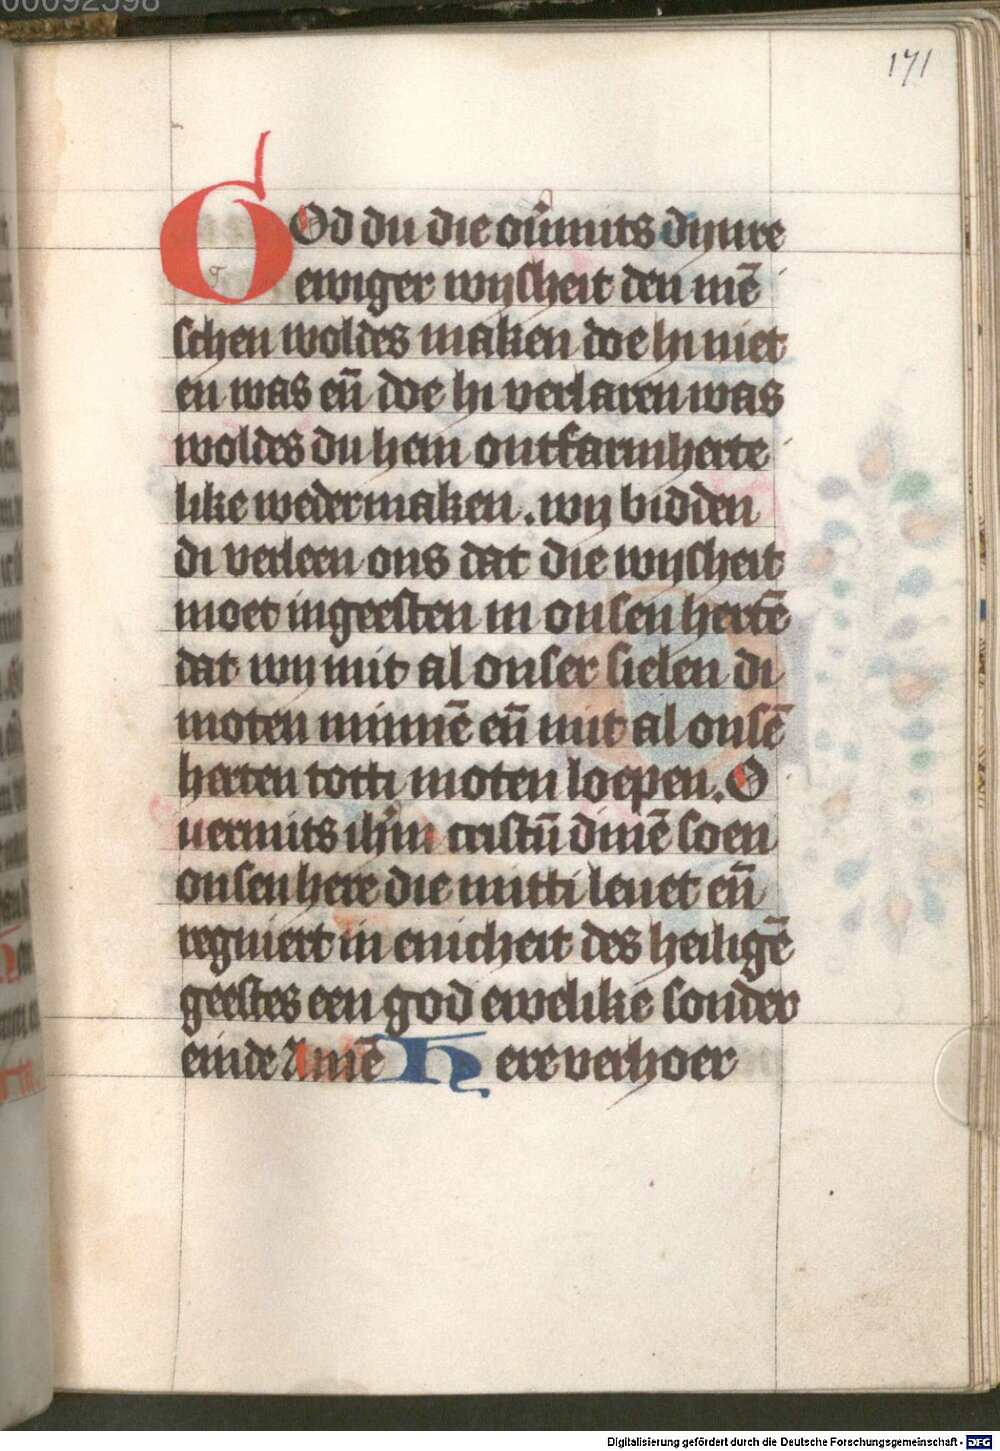 00092598
171
GOd du die ou̅mits dynre
ewiger wijsheit den me̅
schen woldes maken doe hi niet
en was en̅ doe hi verlaren was
woldes du hem ontfarmherte
like wedermaken. wij bidden
di verleen ons dat die wijsheit
moet ingeesten in onsen herte̅
dat wij mit al onser sielen di
moten minne̅ en̅ mit al onse̅
herten totti moten loepen. O
uermits ihm̅ cristu̅ dine̅ soen
onsen here die mitti leuet en̅
regniert in enicheit des heilige̅
geestes een god ewelike sonder
einde Ame̅ Here verhoer
Digitalisierung gefördert durch die Deutsche Forschungsgemeinschaft - DFG